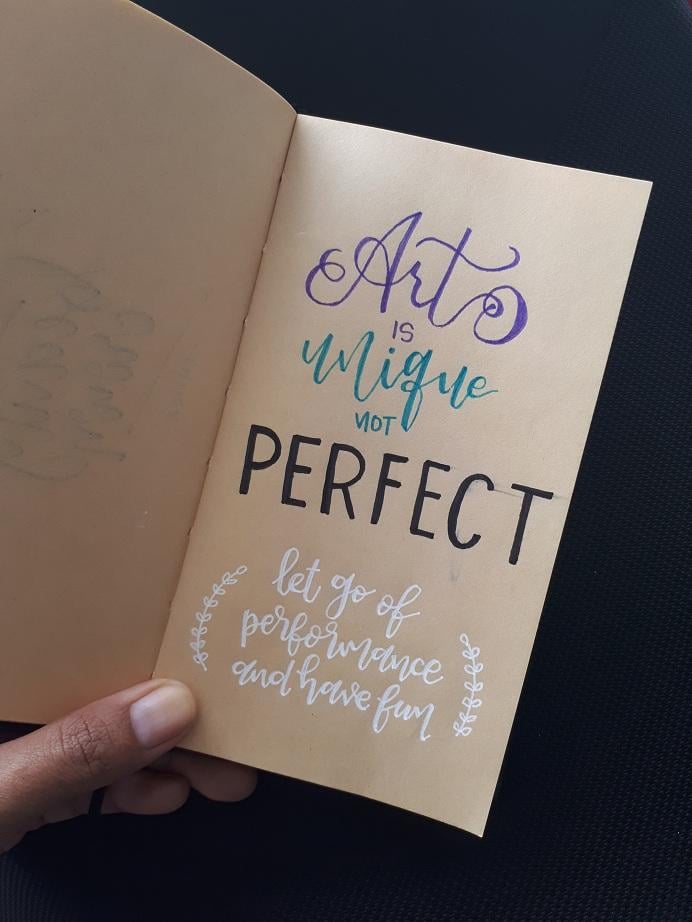 Art
IS
unique
NOT
PERFECT
let go of
performance
and have fun